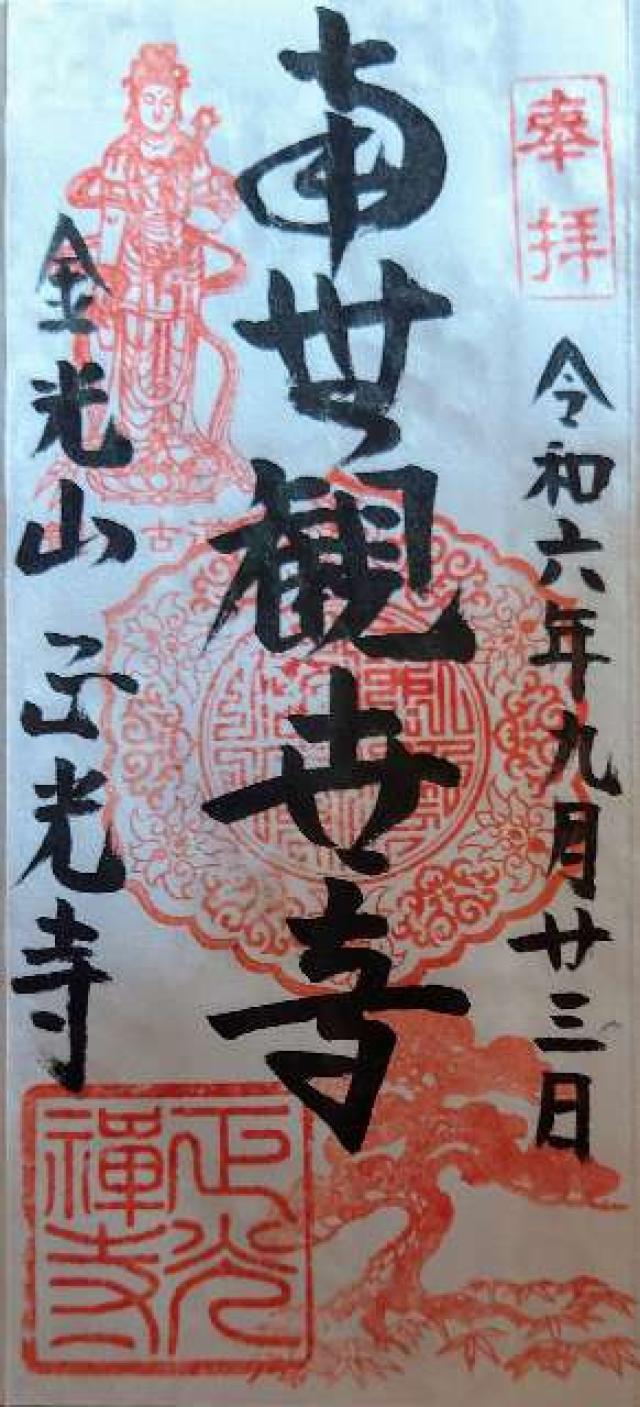 奉拝
令和六年九月廿三日
南無観世音
金光山 正光寺
正光禪寺